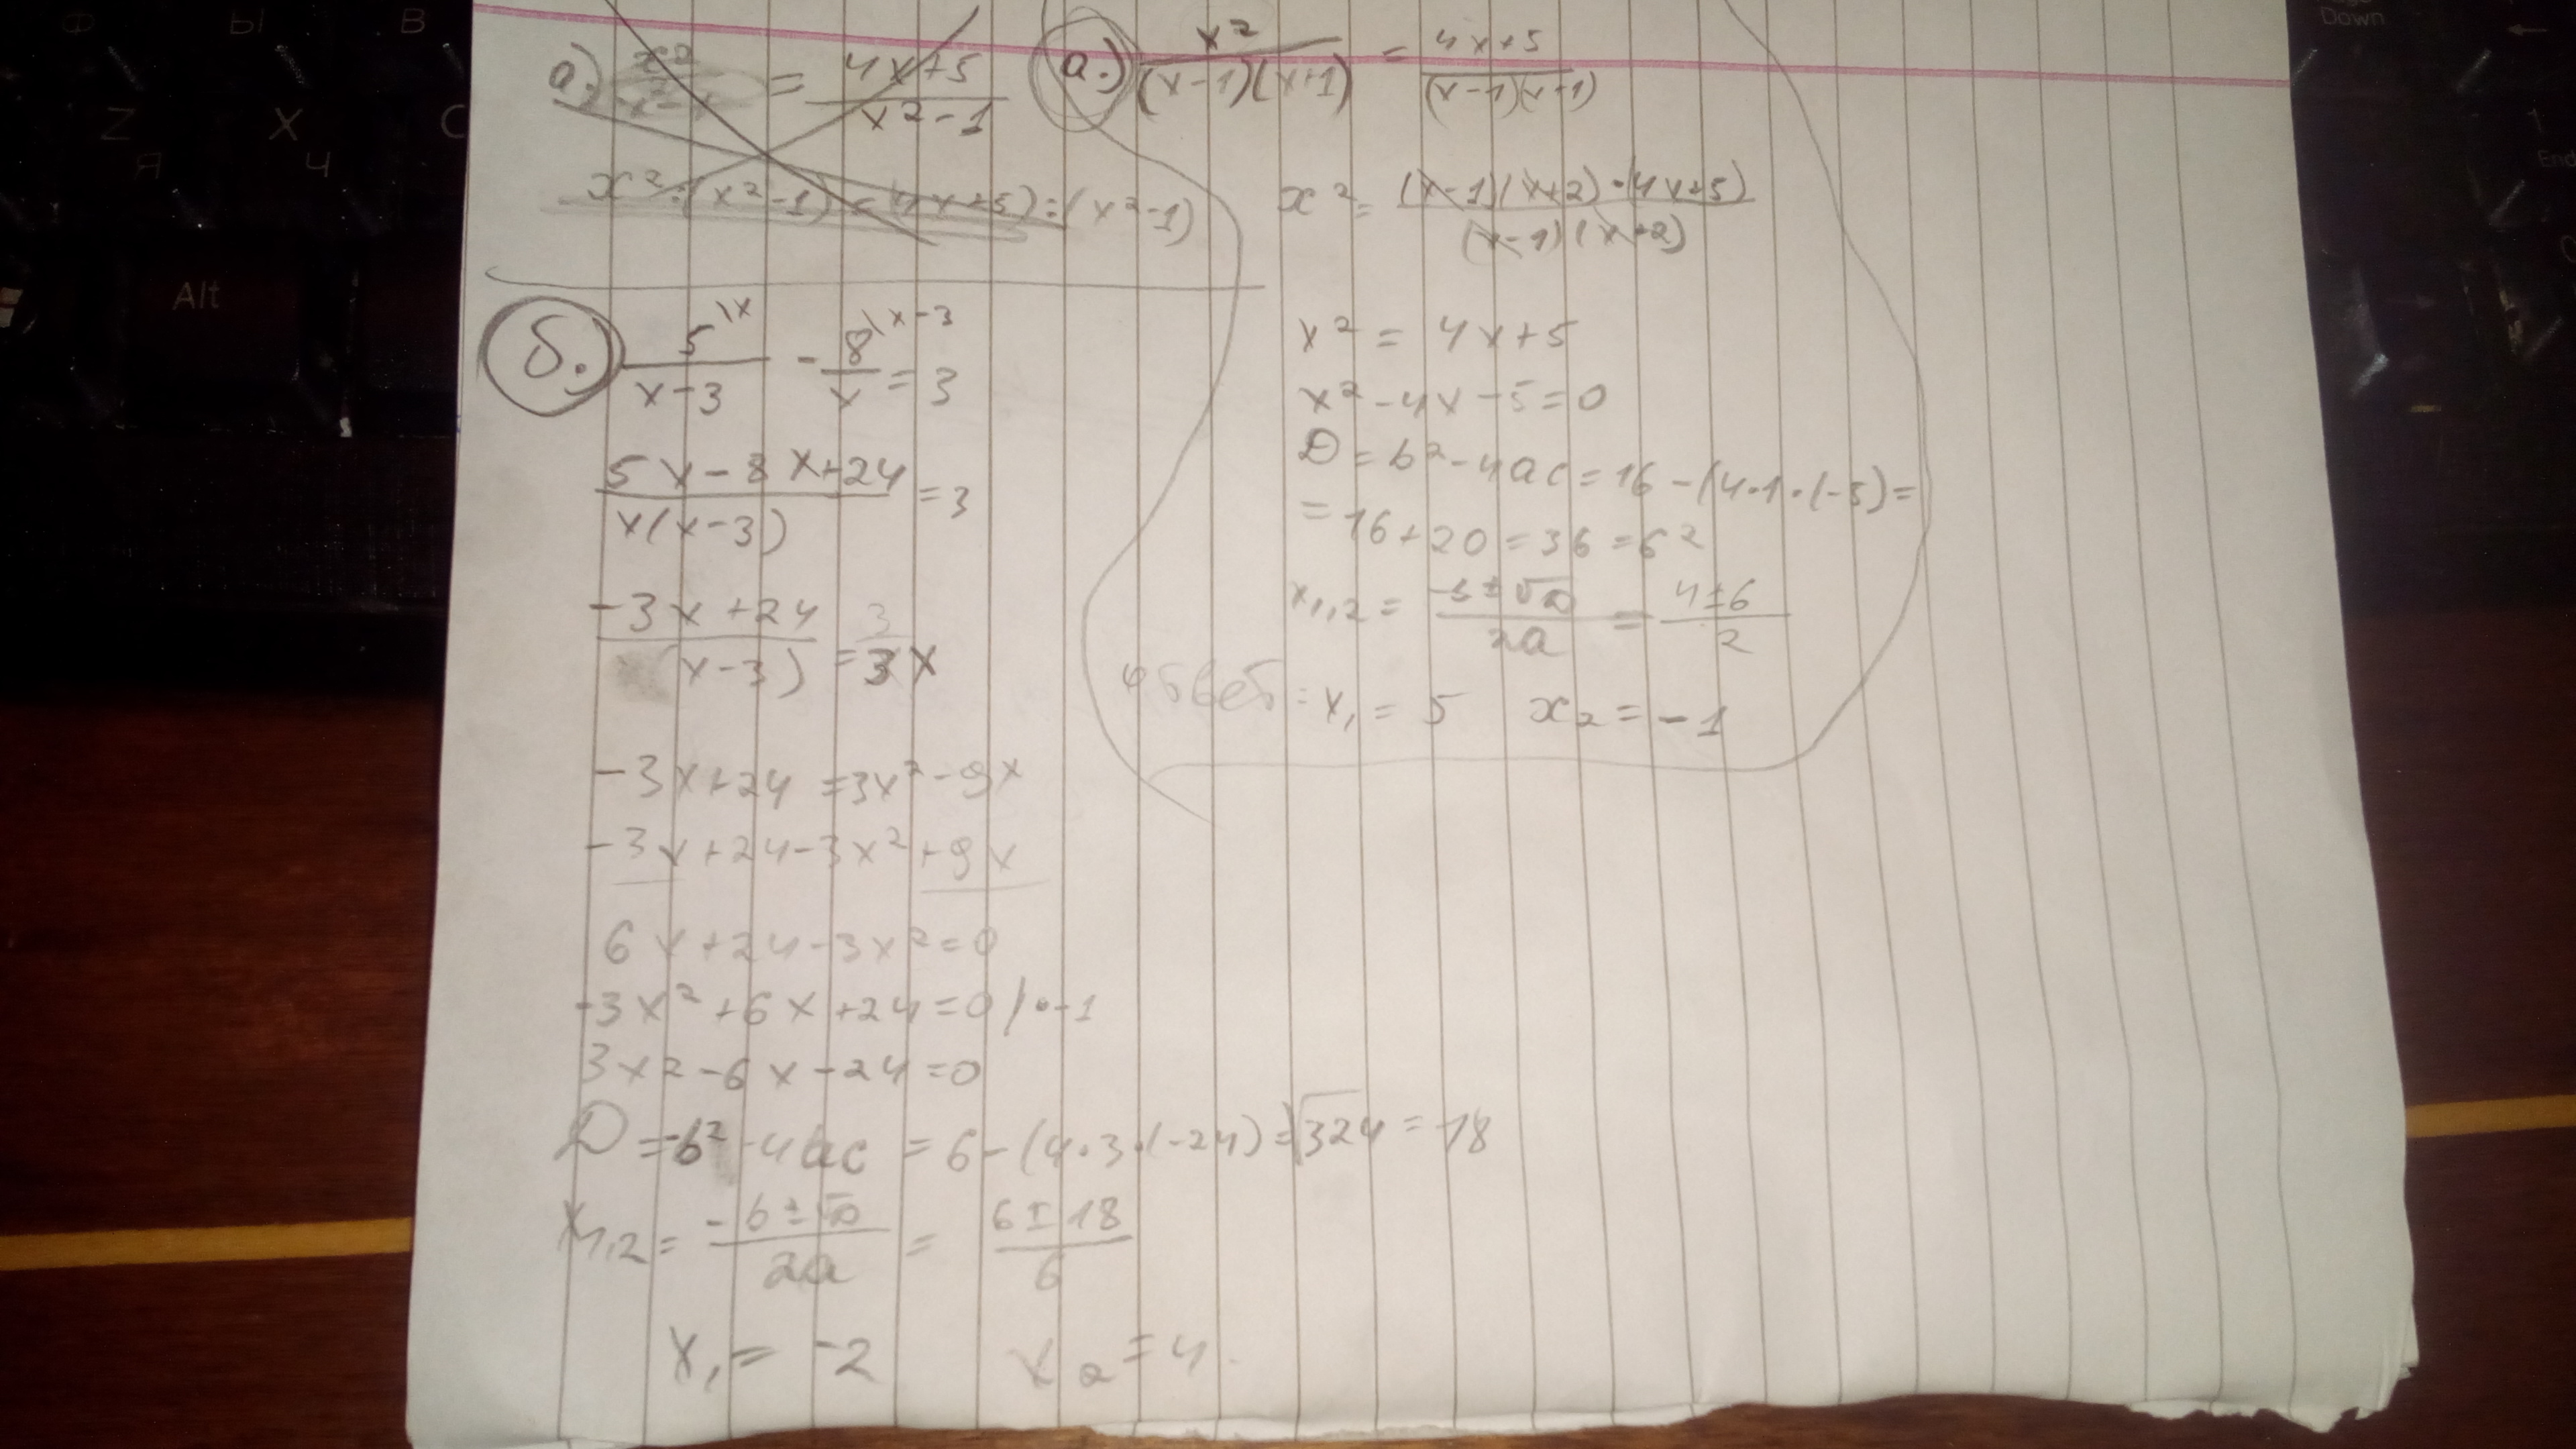 а.) x² = 4x+5 / x²-1
x²:(x²-1) = (4x+5):(x²-1)
а.) x² / (x-1)(x+1) = 4x+5 / (x-1)(x+1)
x² = (x-1)(x+2)·(4x+5) / (x-1)(x+2)
x² = 4x+5
x²-4x-5=0
D = b²-4ac = 16-(4·1·(-5)=
= 16+20=36=6²
x₁,₂ = -b±√D / 2a = 4±6 / 2
ответ: x₁ = 5 x₂ = -1
б. 5\x / x-3 - 8\x-3 / x = 3
5x-8x+24 / x(x-3) = 3
-3x+24 / (x-3) = 3 / 3x
-3x+24 =3x²-9x
-3x+24-3x²+9x
6x+24-3x²=0
-3x²+6x+24=0 /·-1
3x2-6x-24=0
D =b²-4ac = 6-(4·3·(-24)=√324 = 18
x₁,₂ = -b±√D / 2a = 6±18 / 6
x₁ = -2 x₂ = 4
Alt
Z
Я
X
Ч
C
Ф
Ы
В
Down
End